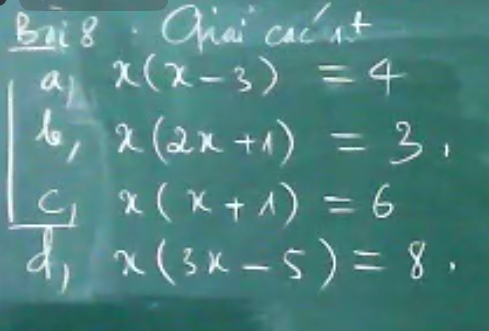 Bài 8. Giải các pt
a, x(x-3) = 4
b, x(2x+1) = 3.
c, x(x+1) = 6
d, x(3x-5) = 8.